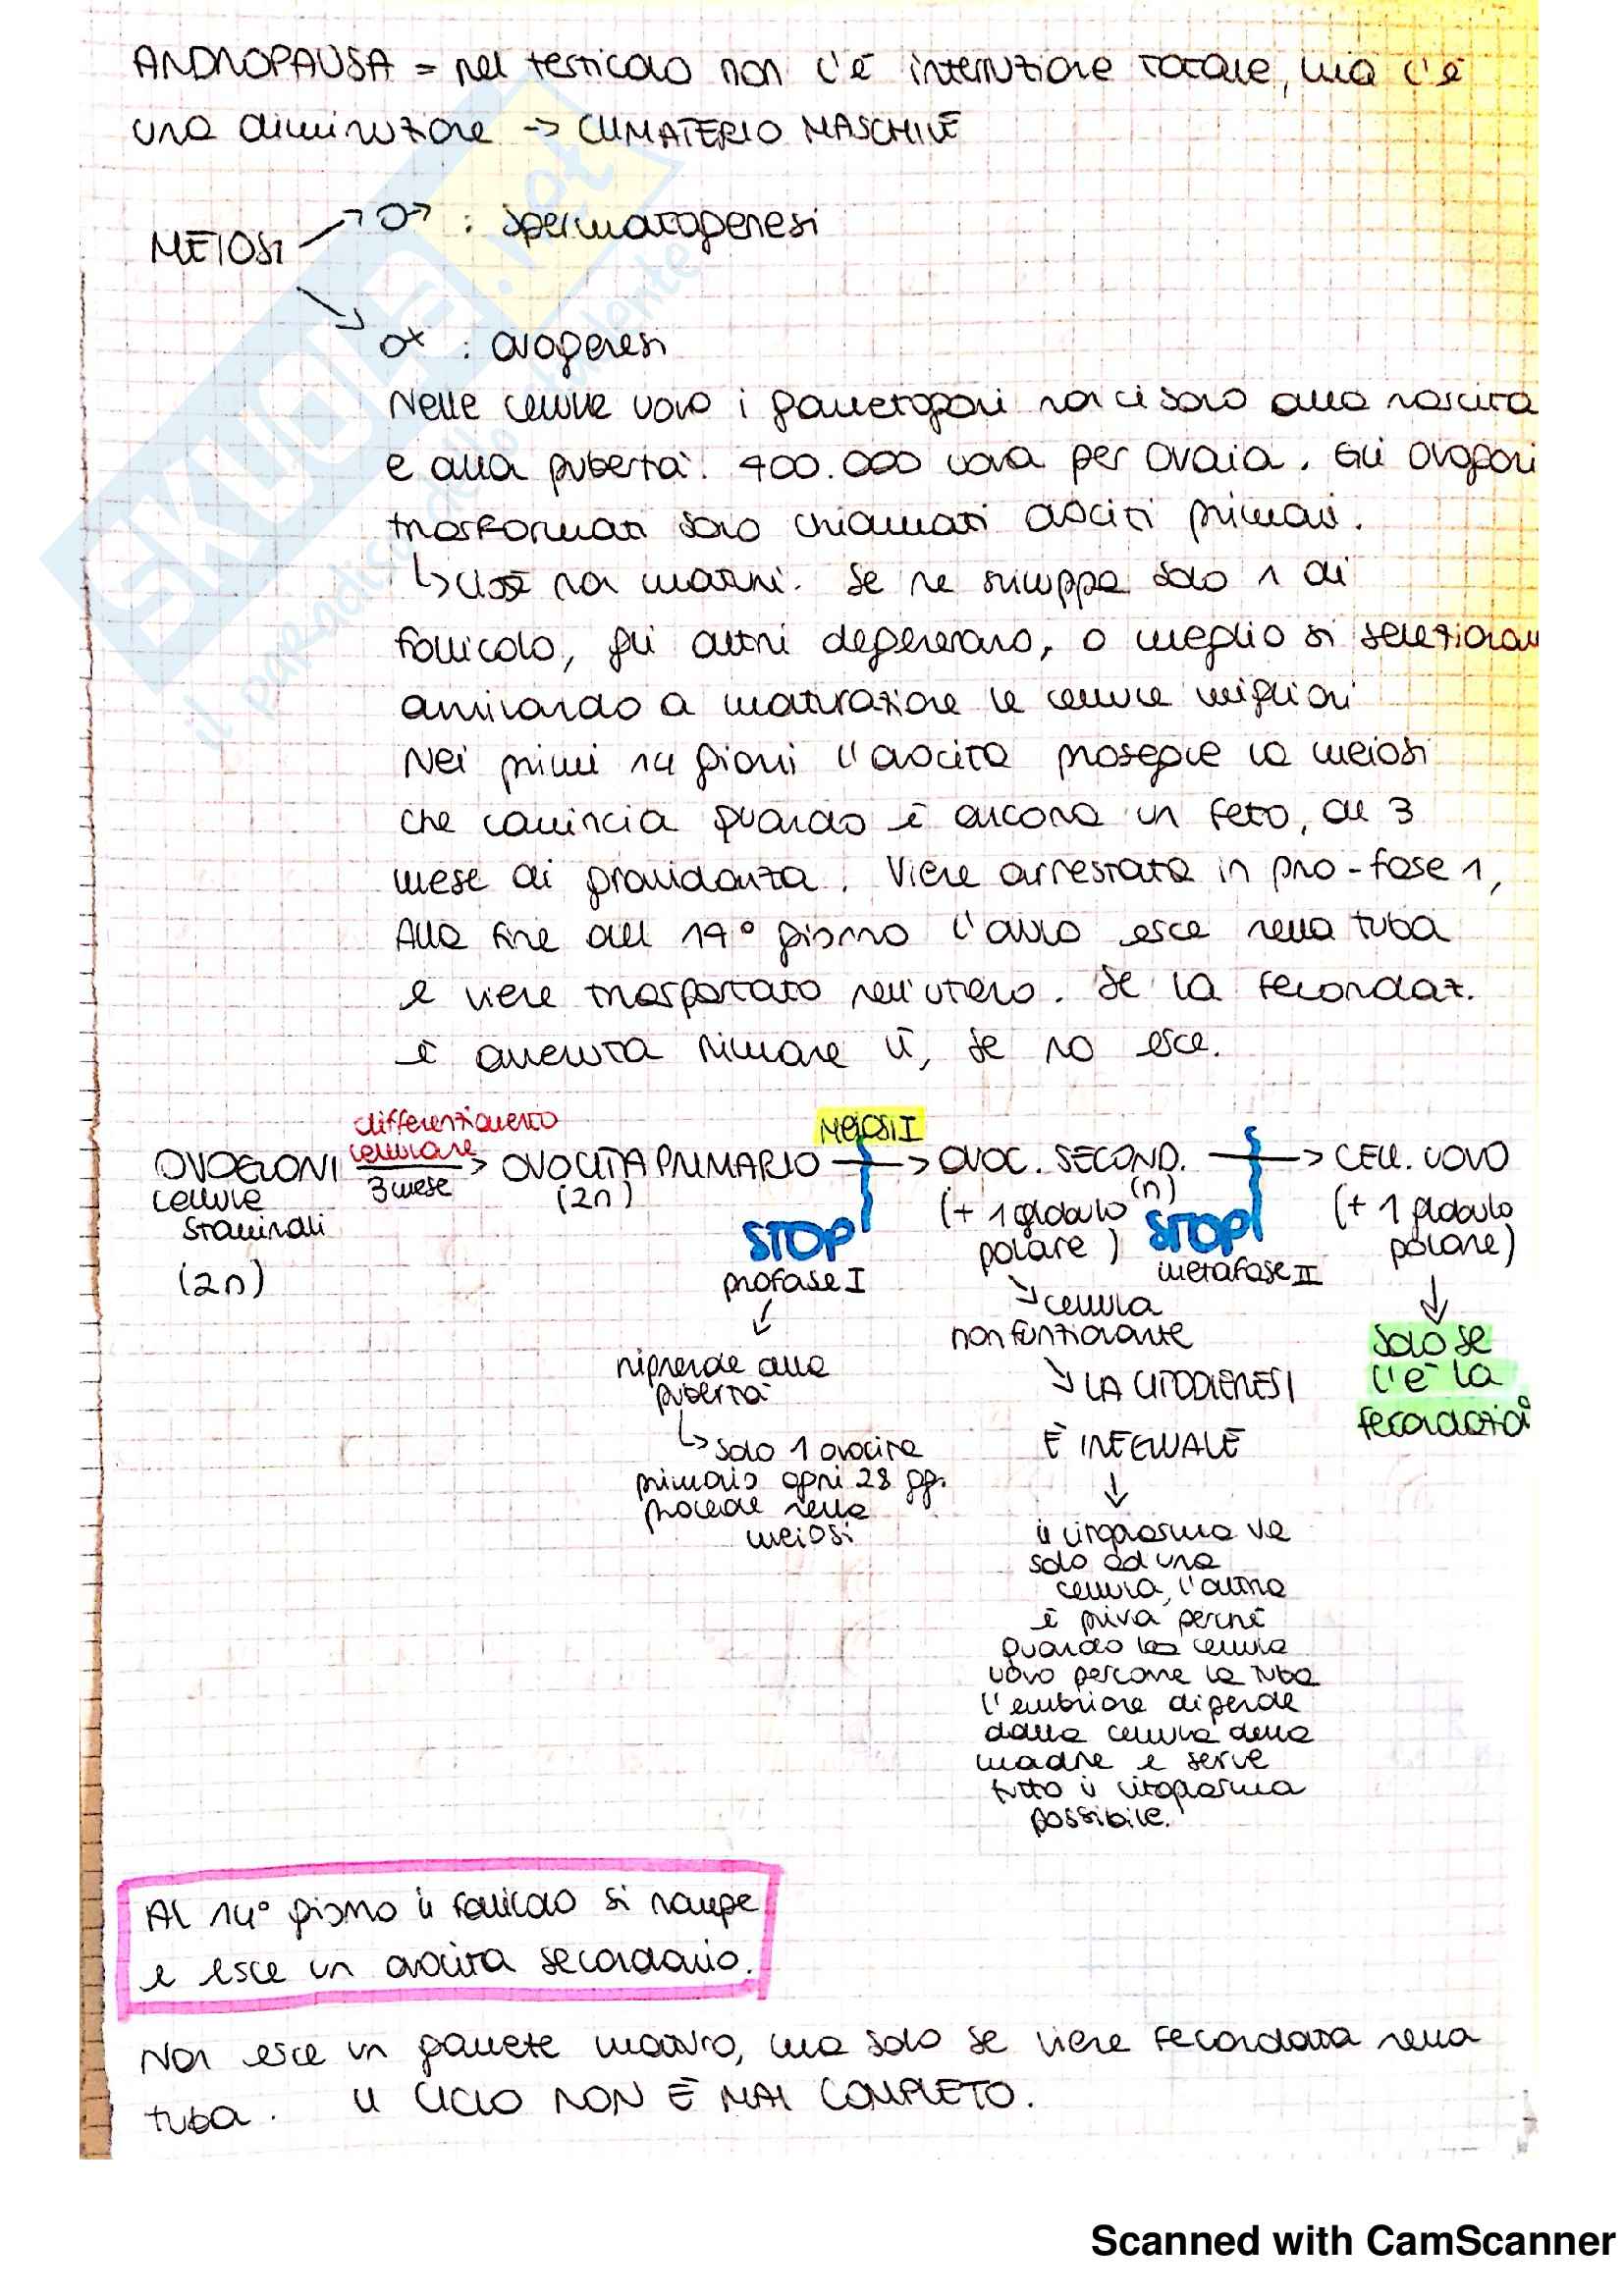 ANDROPAUSA = nel testicolo non c'è interruzione totale, ma c'è
una diminuzione -> CLIMATERIO MASCHILE
MEIOSI
♂ : spermatogenesi
♀ : ovogenesi
Nelle cellule uovo i gametogoni non ci sono alla nascita
e alla pubertà. 400.000 uova per ovaia. Gli ovogoni
trasformati sono chiamati ovociti primari.
↳ cioè non maturi. Se ne sviluppa solo 1 di
follicolo, gli altri degenerano, o meglio si selezionan
arrivando a maturazione le cellule migliori
Nei primi 14 giorni l'ovocita prosegue la meiosi
che comincia quando è ancora un feto, al 3
mese di gravidanza. Viene arrestata in pro-fase 1,
Alla fine del 14° giorno l'ovulo esce nella tuba
e viene trasportato nell'utero. Se la fecondaz.
è avvenuta rimane lì, se no esce.
differenziamento
cellulare
MEIOSI I
OVOGONI -> OVOCITA PRIMARIO -> OVOC. SECOND. -> CELL. UOVO
3 mese
cellule
staminali
(2n)
(2n)
(n)
(+ 1 globulo
polare)
(+ 1 globulo
polare)
STOP
profase I
STOP
metafase II
riprende alla
pubertà
↳ solo 1 ovocita
primario ogni 28 gg.
procede nella
meiosi
↘ cellula
non funzionante
↘ LA CITODIERESI
È INEGUALE
↓
il citoplasma va
solo ad una
cellula, l'altra
è priva perchè
quando la cellula
uovo percorre la tuba
l'embrione dipende
dalla cellula della
madre e serve
tutto il citoplasma
possibile.
↓
solo se
c'è la
fecondazio
Al 14° giorno il follicolo si rompe
e esce un ovocita secondario.
Non esce un gamete maturo, ma solo se viene fecondata nella
tuba. IL CICLO NON È MAI COMPLETO.
SKUOLA.net
il paradiso dello studente
Scanned with CamScanner